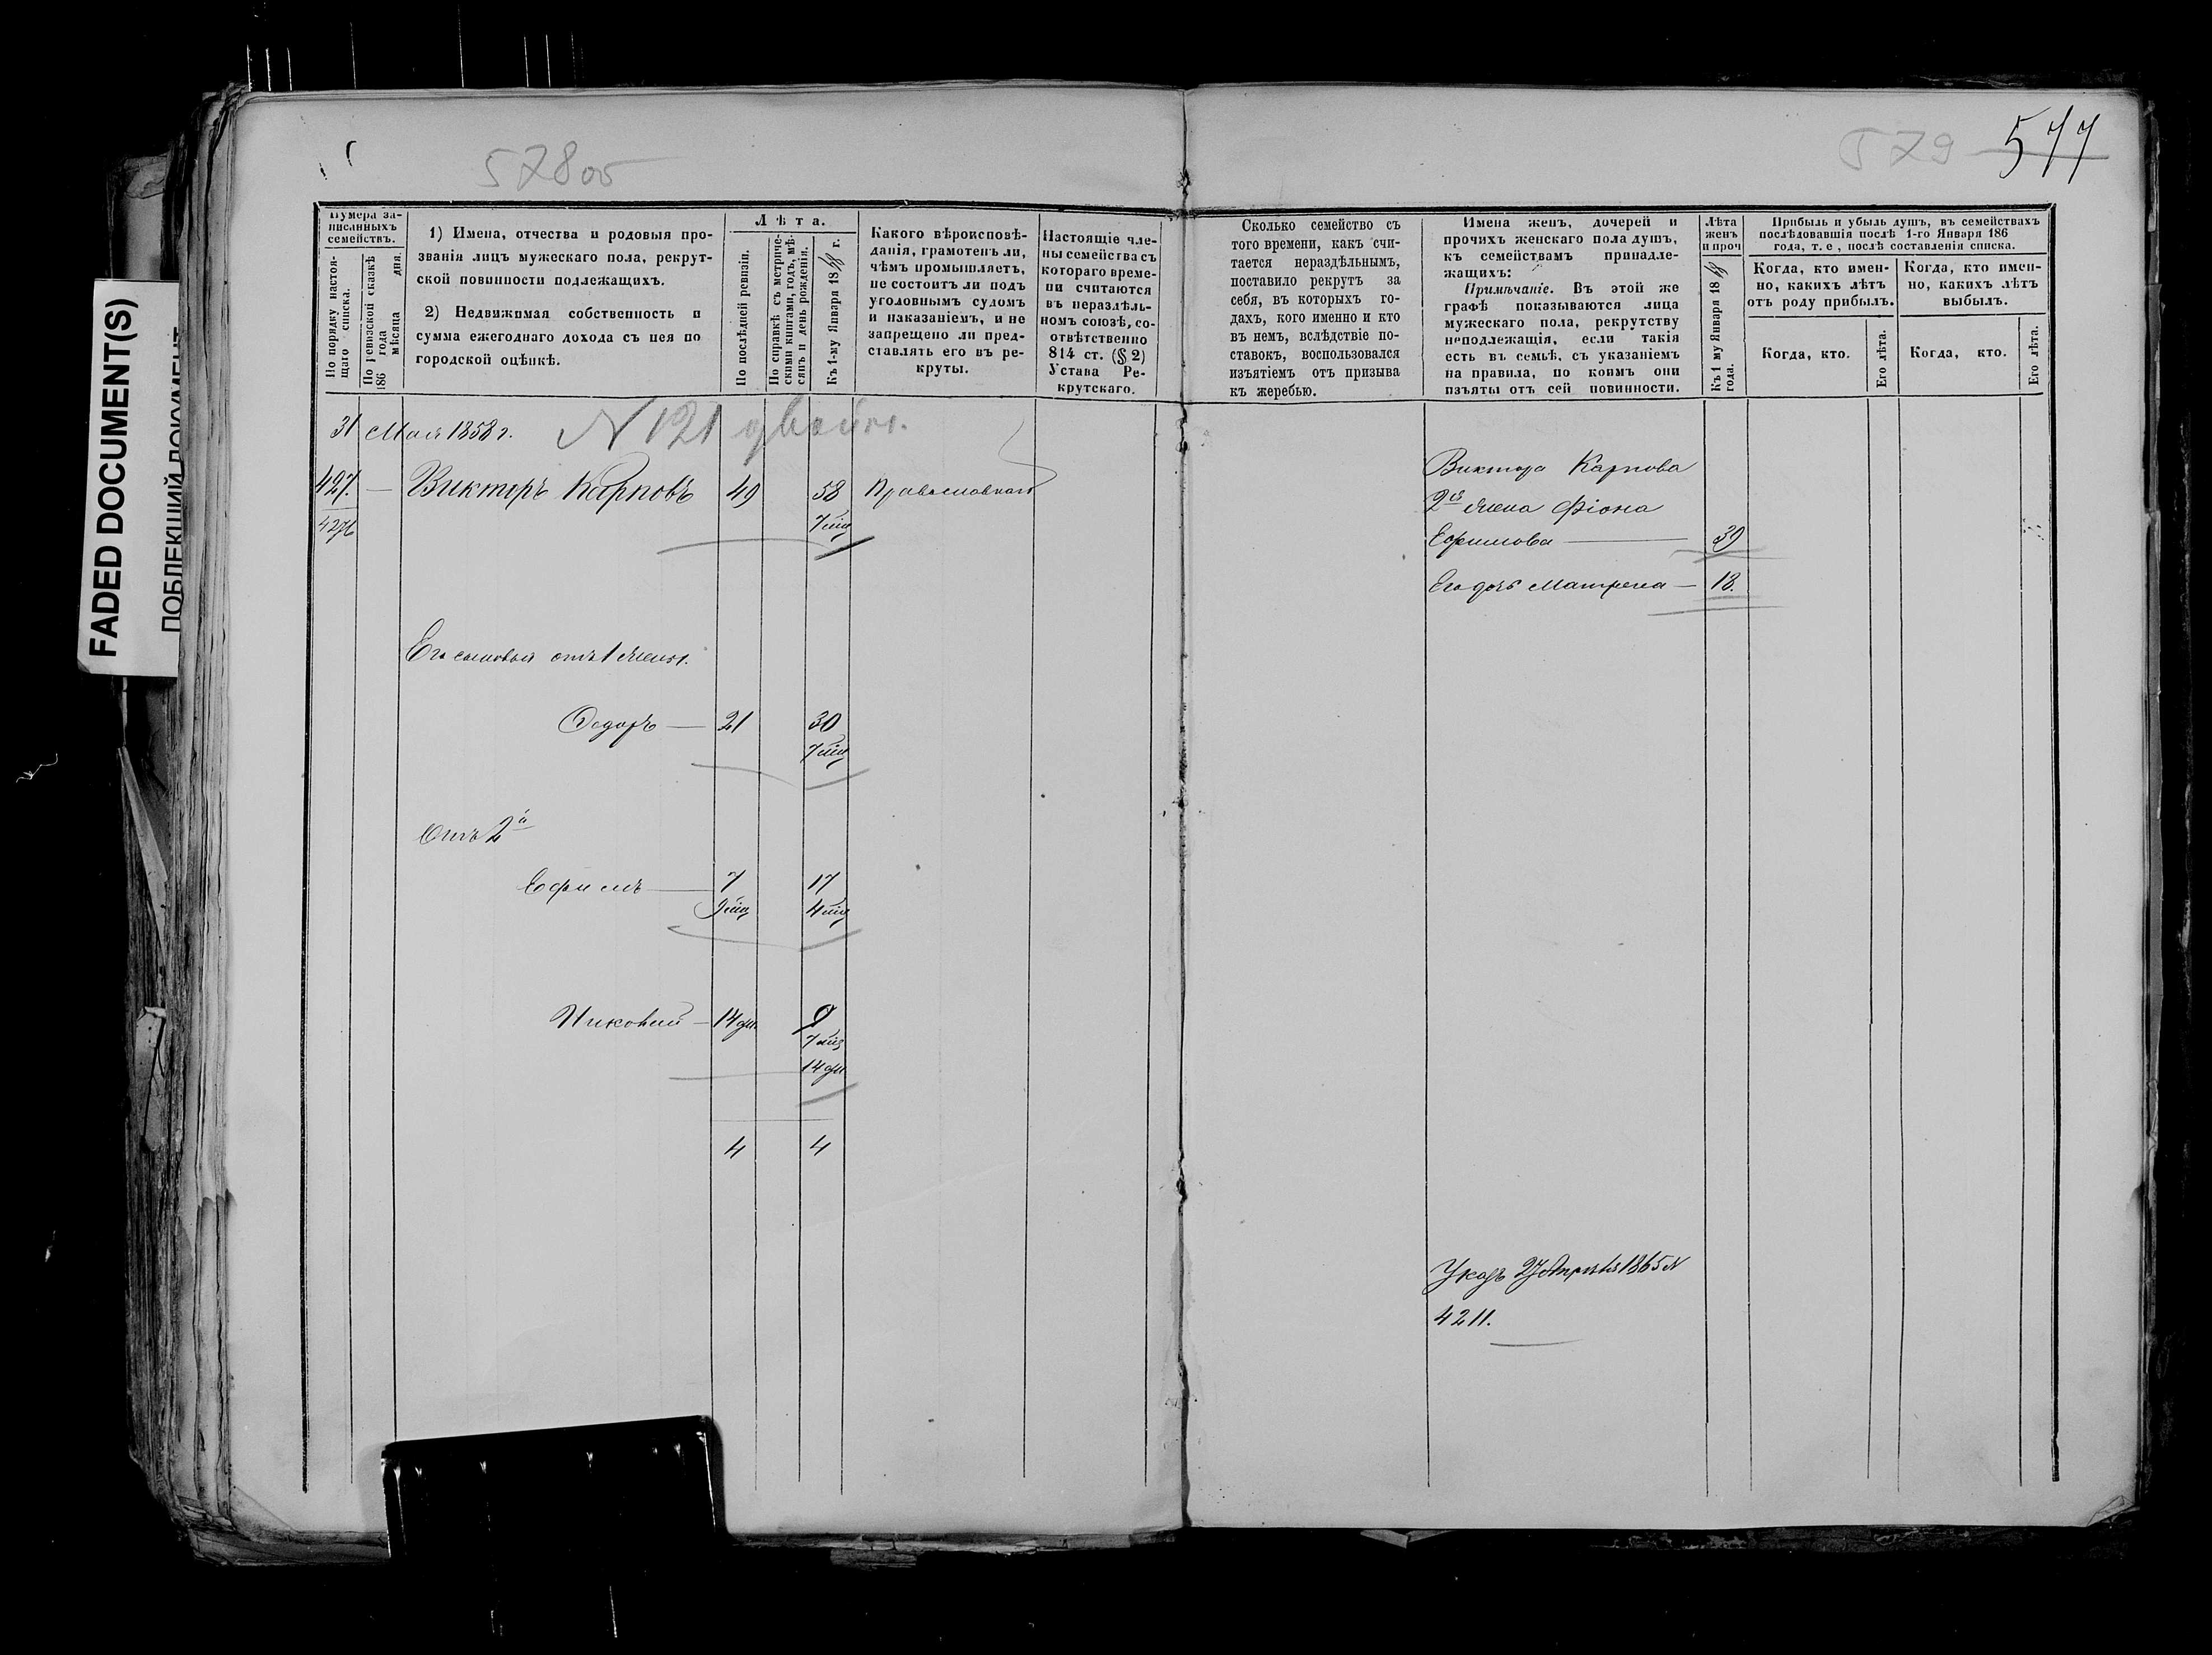 FADED DOCUMENT(S)
578 об
579 577
Нумера за-
писанныхъ
семействъ.
По порядку настоя-
щаго списка.
По ревизской сказкѣ
186 года
мѣсяца дня.
1) Имена, отчества и родовыя про-
званія лицъ мужескаго пола, рекрут-
ской повинности подлежащихъ.
2) Недвижимая собственность и
сумма ежегоднаго дохода съ нея по
городской оцѣнкѣ.
Лѣта.
По послѣдней ревизіи.
По справкѣ съ метриче-
скими книгами, годъ, мѣ-
сяцъ и день рожденія.
Къ 1-му Января 1868 г.
Какого вѣроисповѣ-
данія, грамотенъ ли,
чѣмъ промышляетъ,
не состоитъ ли подъ
уголовнымъ судомъ
и наказаніемъ, и не
запрещено ли пред-
ставлять его въ ре-
круты.
Настоящіе чле-
ны семейства съ
котораго време-
ни считаются
въ нераздѣль-
номъ союзѣ, со-
отвѣтственно
814 ст. (§ 2)
Устава Ре-
крутскаго.
Сколько семейство съ
того времени, какъ счи-
тается нераздѣльнымъ,
поставило рекрутъ за
себя, въ которыхъ го-
дахъ, кого именно и кто
въ немъ, вслѣдствіе по-
ставокъ, воспользовался
изъятіемъ отъ призыва
къ жеребью.
Имена женъ, дочерей и
прочихъ женскаго пола душъ,
къ семействамъ принадле-
жащихъ:
Примѣчаніе. Въ этой же
графѣ показываются лица
мужескаго пола, рекрутству
неподлежащія, если такія
есть въ семьѣ, съ указаніемъ
на правила, по коимъ они
изъяты отъ сей повинности.
Лѣта
женъ
и проч
Къ 1 му Января 1868
года.
Прибыль и убыль душъ, въ семействахъ
послѣдовавшія послѣ 1-го Января 186
года, т. е, послѣ составленія списка.
Когда, кто имен-
но, какихъ лѣтъ
отъ роду прибылъ.
Когда, кто.
Его лѣта.
Когда, кто имен-
но, какихъ лѣтъ
выбылъ.
Когда, кто.
Его лѣта.
31 Мая 1858 г. N 121
427. — Викторъ Карповъ 49 58 Православнаго
7 мѣц
Его сыновья отъ 1 жены.
Ѳедоръ — 21 30
7 мѣц
Отъ 2й
Ефимъ — 7 17
9 мѣц 4 мѣц
14 дн. 9
7 мѣц
14 дн
4 4
Виктора Карпова
2я жена Фіона
Ефимова — 39
Его дочь Матрена — 18.
Указъ 27 Апрѣля 1865 N
4211.